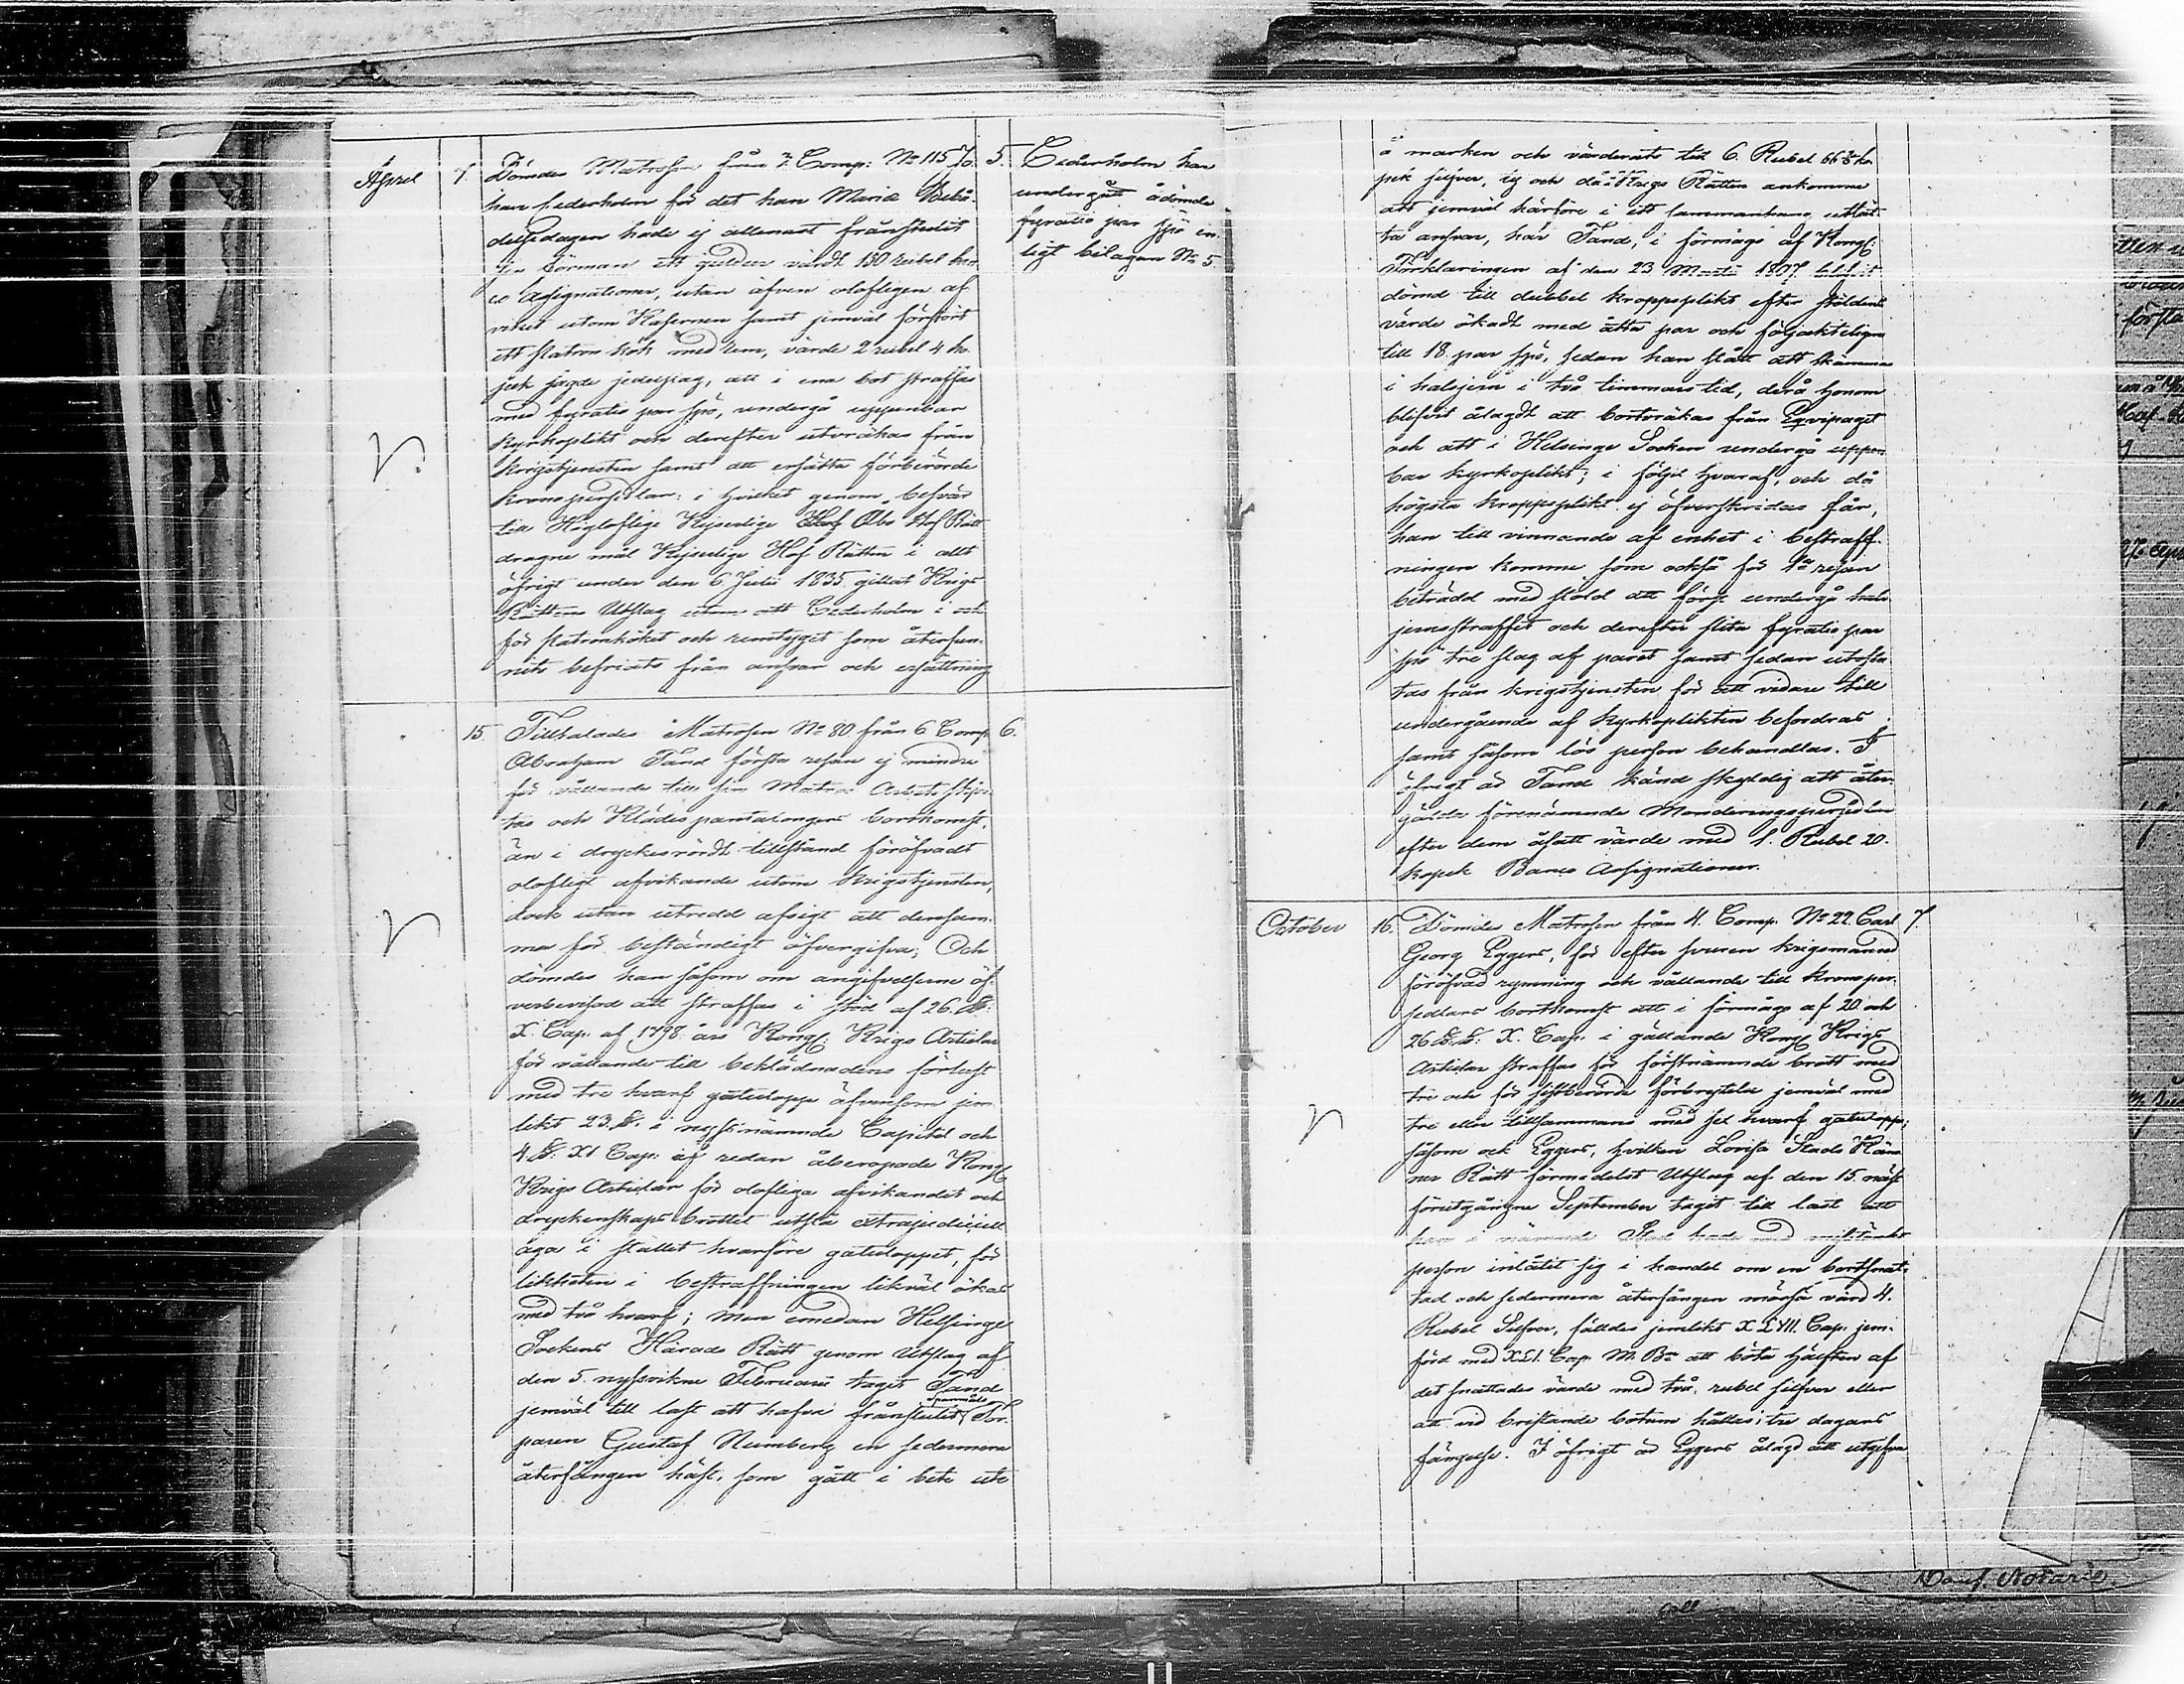 April
7.
Dömdes Matrosen från 7. Comp: No 115 Jo-
han Cederholm för det han Mariæ Bebå-
delsedagen hade ej allenast frånstulit
sin Förman ett guldur värdt 150 rubel ban-
co Assignationer, utan äfven olofligen af-
vikit utom Kasernen samt jemväl förstört
ett patron kök med rem, värde 2 rubel 4 ko-
pek sagde jede slag, att i ena bot straffas
med fyratio par spö, undergå uppenbar
Kyrkoplikt och derefter utvräkas från
krigstjensten samt att ersätta förberörde
kronopersedlar: i hvilket genom besvär
till Högloflige Kejserlige Hof Åbo Hof Rätt
dragne mål Kejserlige Hof Rätten i allt
öfrigt under den 6 Julii 1835 gillat Krigs
Rättens Utslag utom att Cederholm i och
för patronköket och remtyget som återfun-
nits befriats från ansvar och ersättning
5.
Cederholm har
undergått ådömde
fyratio par spö en-
ligt bilagan No 5.
15.
Tilltalades Matrosen No 80 från 6 Comp.
Abraham Tand första resan ej mindre
för vållande till sin Matros Arbets skjor-
tas och Klädespantalongers bortkomst,
än i dryckesrördt tillstånd föröfvadt
olofligt afvikande utom Krigstjensten,
dock utan utredd afsigt att densam-
ma för beständigt öfvergifva; Och
dömdes han såsom om angifvelserne öf-
verbevisad att straffas i stöd af 26. §.
X. Cap. af 1798 års Kongl: Krigs Articlar
för vållande till beklädnadens förlust
med tre hvarf gatulopp äfvensom jem-
likt 23. §. i nystnämnde Capitel och
4. §: XI Cap: af redan åberopade Kongl
Krigs Articlar för olofliga afvikandet och
dryckenskaps brottet utstå extrajudiciell
aga i stället hvarföre gatuloppet, för
likheten i bestraffningen likväl ökas
med två hvarf; Men emedan Helsinge
Sockens Härads Rätt genom Utslag af
den 5. nyssvikne Februarii tagit Tand
jemväl till last att hafva frånstulit Tor-
paren Gustaf Numberg en sedermera
återfången häst, som gått i bete ute
6.
å marken och värderats till 6. Rubel 66 2/3 ko-
pek silfver, ej och då å Krigs Rätten ankomme
att jemväl härföre i ett sammanhang utlåt-
ta ansvar, har Tand, i förmågo af Kongl:
Förklaringen af den 23 Martii 1807 blifvit
dömd till dubbel kroppsplikt efter stöldens
värde ökadt med åtta par och följakteligen
till 18. par spö, sedan han stått att skämmas
i halsjern i två timmars tid, derå honom
blifvit ålagdt att bortvräkas från Eqvipaget
och att i Helsinge Socken undergå uppen-
bar kyrkoplikt; i följd hvaraf, och då
högsta kroppsplikt ej öfverskridas får,
han till vinnande af enhet i bestraff-
ningen komme som också för 1:a resan
beträdd med stöld att först undergå hals
jernsstraffet och derefter slita fyratio par
spö tre slag af paret samt sedan utvrä-
kas från krigstjensten för att vidare till
undergående af Kyrkoplikten befordras
samt såsom lös person behandlas. I
öfrigt är Tand känd skyldig att åter-
gälda förenämnde Monderingspersedlar
efter dem åsatt värde med 1. Rubel 20.
kopek Banco Assignationer.
October
16.
Dömdes Matrosen från 4. Comp. No 22 Carl
Georg Eggers, för efter svuren krigsmannaed
föröfvad rymning och vållande till kronoper-
sedlars bortkomst att i förmågo af 20 och
26 §.§. X. Cap. i gällande Kongl Krigs
Articlar straffas för förstnämnde brott med
tre och för sistberörde förbrytelse jemväl med
tre eller tillsammans med sex hvarf gatulopp;
såsom ock Eggers, hvilken Lovisa Stads Käm-
ners Rätt förmedelst Utslag af den 15. näst
föregångne September tagit till last att
han i nämnde Stad hade med misstänkt
person inlåtit sig i handel om en bortsnat-
tad och sedermera återfången mässa värd 4.
Rubel Silfver, fälldes jemlikt XLVIII. Cap. jem-
förd med XLI. Cap. M. Bn att böta hälften af
det snattades värde med två rubel silfver eller
att vid bristande botum hållas i tre dagars
fängelse. I öfrigt är Eggers ålagd att utgifva
7.